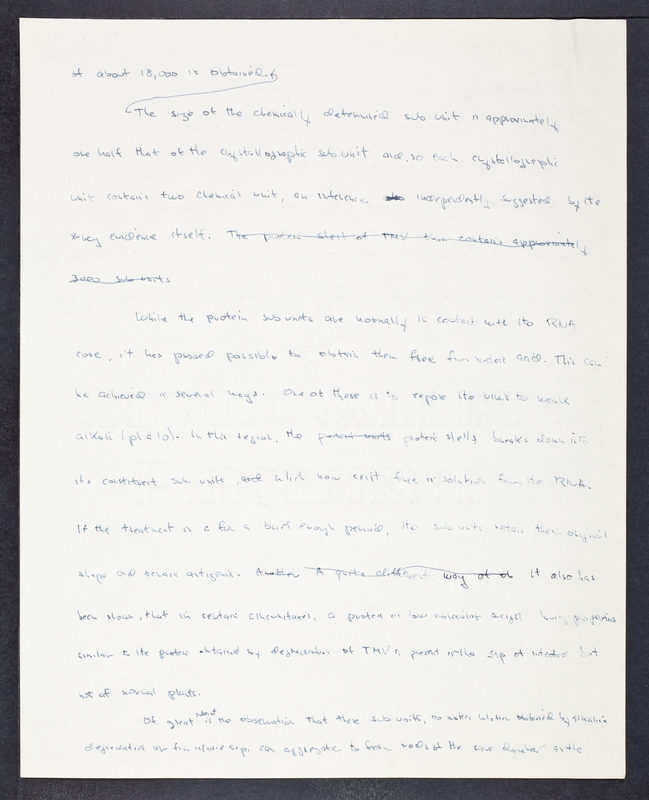 of about 18,000 is obtained.
The size of the chemically determined sub unit is approximately
one half that of the crystallographic sub unit and so each crystallographic
unit contains two chemical unit, an inference independently suggested by the
x-ray evidence itself. The protein shell of TMV then contains approximately
3000 sub units
While the protein sub units are normally in contact with the RNA
core, it has proved possible to obtain them free from nucleic acid. This can
be achieved in several ways. One of these is to expose the virus to weak
alkali (pH 10). In this region, the protein units protein shell breaks down into
its constituent sub units, and which now exist free in solution from the RNA.
If the treatment is for a brief enough period, the sub units retain their original
shape and remain antigenic. Another A quite different way of It also has
been shown, that in certain circumstances, a protein of low molecular weight having properties
similar to the protein obtained by degradation of TMV is present in the sap of infected but
not of normal plants.
Of great interest is the observation that these sub units, no matter whether obtained by alkaline
degradation or from infective sap, can aggregate to form rods of the same diameter as the